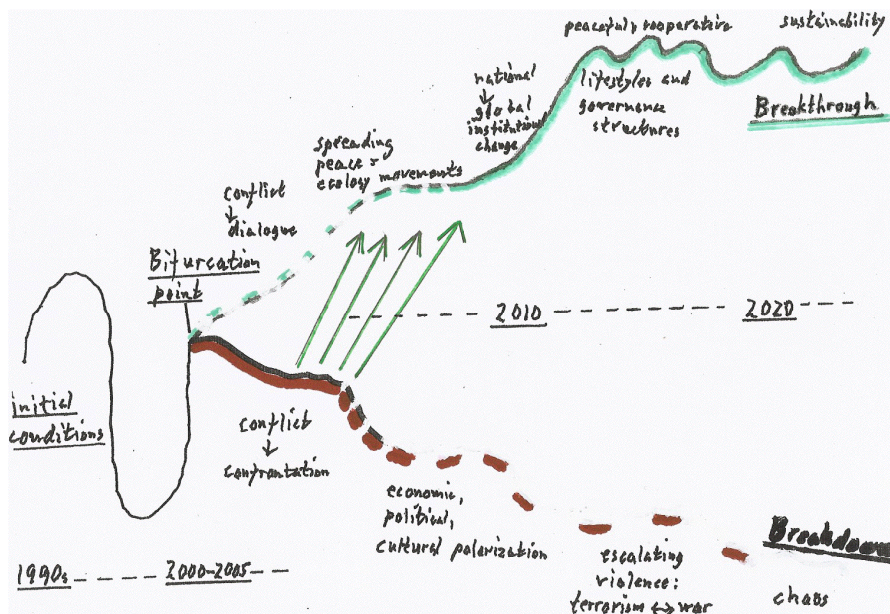 peacefully cooperative
sustainability
national
global
institutional
change
lifestyles and
governance
structures
Breakthrough
spreading
peace =
ecology movements
conflict
dialogue
Bifurcation
point
2010
2020
initial
conditions
conflict
confrontation
economic,
political,
cultural polarization
Breakdown
escalating
violence:
terrorism ↔ war
chaos
1990s
2000-2005